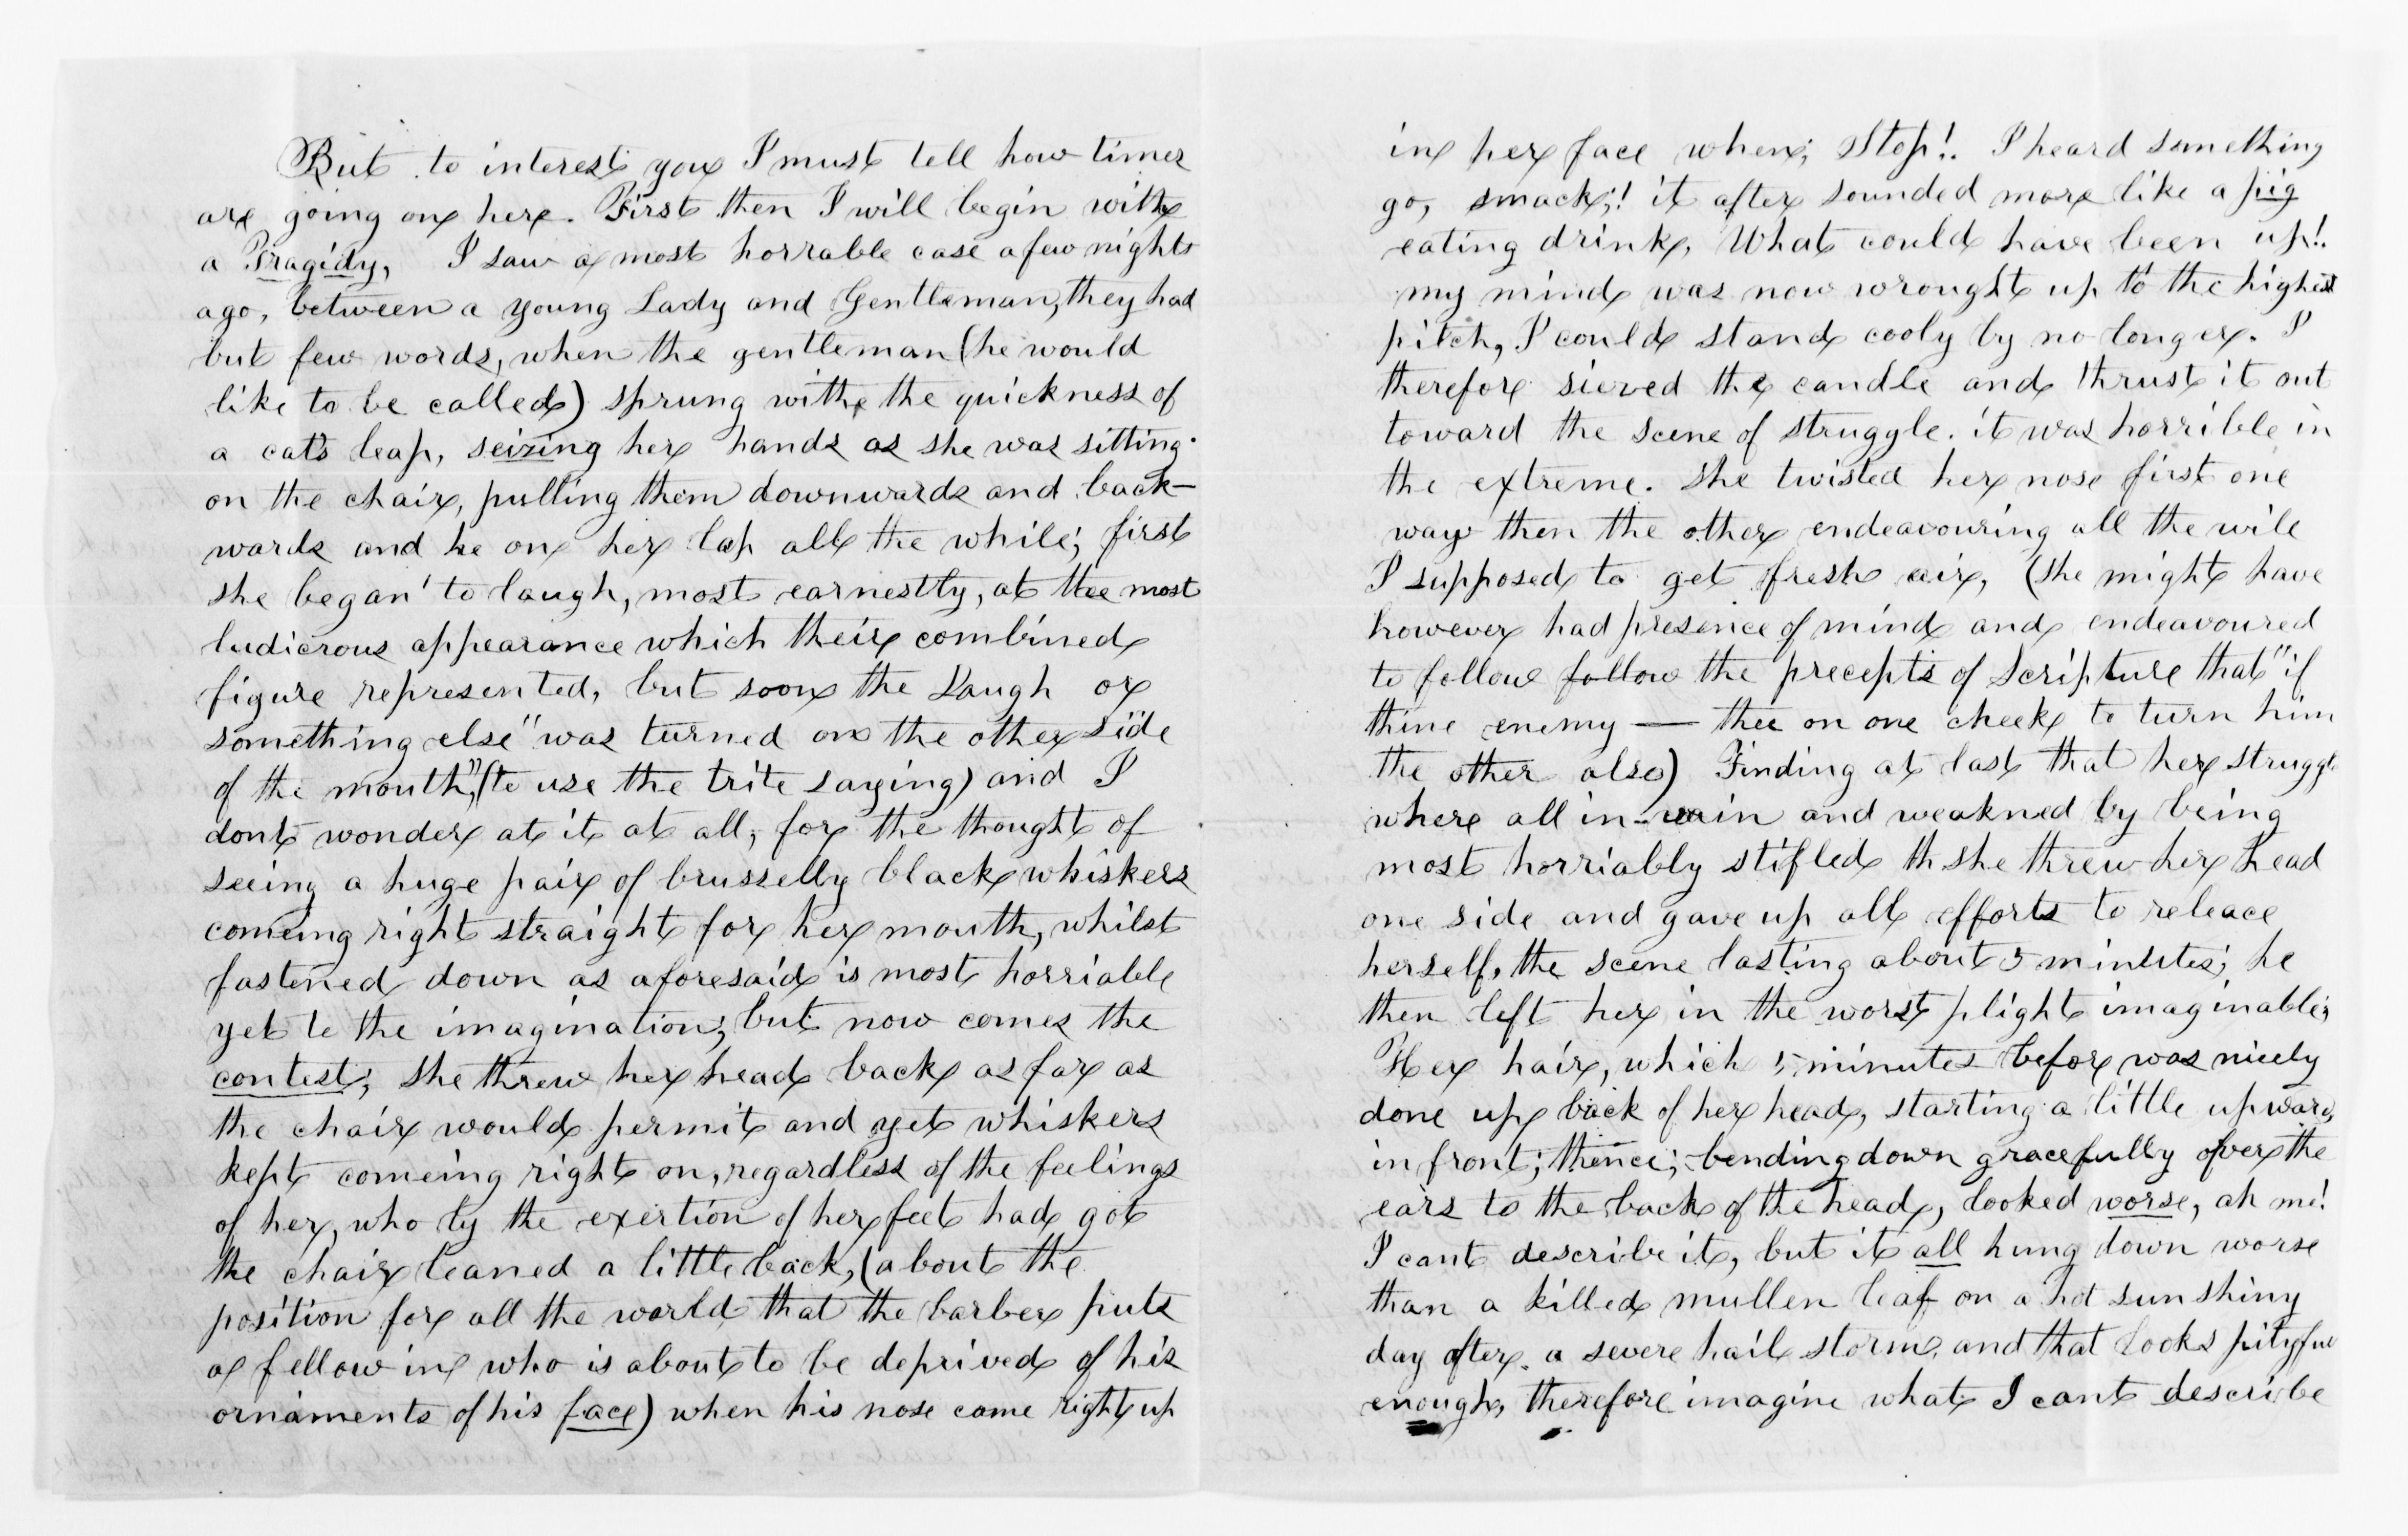 But to interest you I must tell how times
are going on here. First then I will begin with
a Tragidy, I saw a most horrable case a few nights
ago, between a young Lady and Gentleman, they had
but few words, when the gentleman (he would
like to be called) sprung with the quickness of
a cat's leap, seizing her hands as she was sitting
on the chair, pulling them downwards and back-
wards and he on her lap all the while; first
she began to laugh, most earnestly, at the most
ludicrous appearance which their combined
figure represented, but soon the Laugh or
something else "was turned on the other side
of the mouth", (to use the trite saying) and I
dont wonder at it at all, for the thought of
seeing a huge pair of brusselly black whiskers
comeing right straight for her mouth, whilst
fastened down as aforesaid is most horriable
yet to the imagination; but now comes the
contest; she threw her head back as far as
the chair would permit and yet whiskers
kept comeing right on, regardless of the feelings
of her, who by the exertion of her feet had got
the chair leaned a little back, (about the
position for all the world that the barber puts
a fellow in who is about to be deprived of his
ornaments of his face) when his nose came right up
in her face when; Stop!. I heard something
go, smack;! it after sounded more like a pig
eating drink, What could have been up!.
my mind was now wrought up to the highest
pitch, I could stand cooly by no longer. I
therefore sieved the candle and thrust it out
toward the scene of struggle. it was horrible in
the extreme. she twisted her nose first one
way then the other endeavouring all the wile
I supposed to get fresh air, (she might have
however had presence of mind and endeavoured
to follow follow the precepts of Scripture that "if
thine enemy — thee on one cheek to turn him
the other also) Finding at last that her struggle
where all in vain and weakned by being
most horriably stifled th she threw her head
one side and gave up all efforts to releace
herself, the scene lasting about 5 minutes; he
then left her in the worst plight imaginable;
Her hair, which 5 minutes befor was nicely
done up back of her head, starting a little upward
in front; thence; bending down gracefully over the
ears to the back of the head, looked worse, ah me!
I cant describe it, but it all hung down worse
than a killed mullen leaf on a hot sunshiny
day after a severe hail storm, and that Looks pityful
enough, therefore imagine what I cant describe